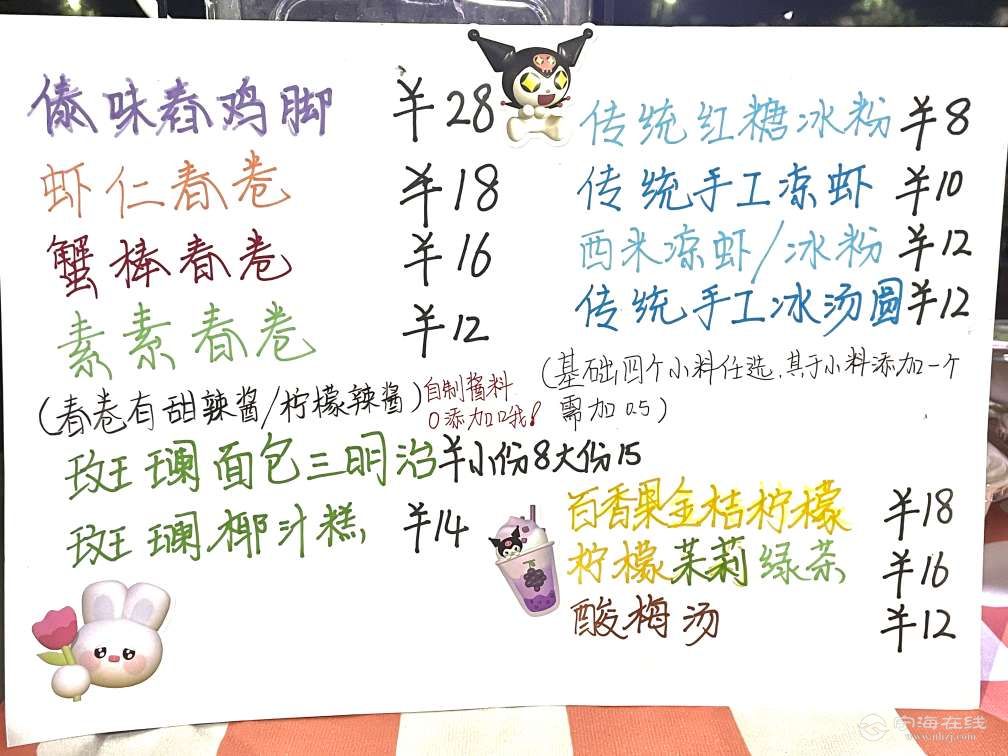 傣味舂鸡脚 ¥28
虾仁春卷 ¥18
蟹棒春卷 ¥16
素素春卷 ¥12
(春卷有甜辣酱/柠檬辣酱)
自制酱料
0添加哦!
斑斓面包三明治¥小份8大份15
斑斓椰汁糕 ¥14
传统红糖冰粉 ¥8
传统手工凉虾 ¥10
西米凉虾/冰粉 ¥12
传统手工冰汤圆¥12
(基础四个小料任选,其于小料添加一个
需加0.5)
百香果金桔柠檬 ¥18
柠檬茉莉绿茶 ¥16
酸梅汤 ¥12
南海在线
www.nhzj.com